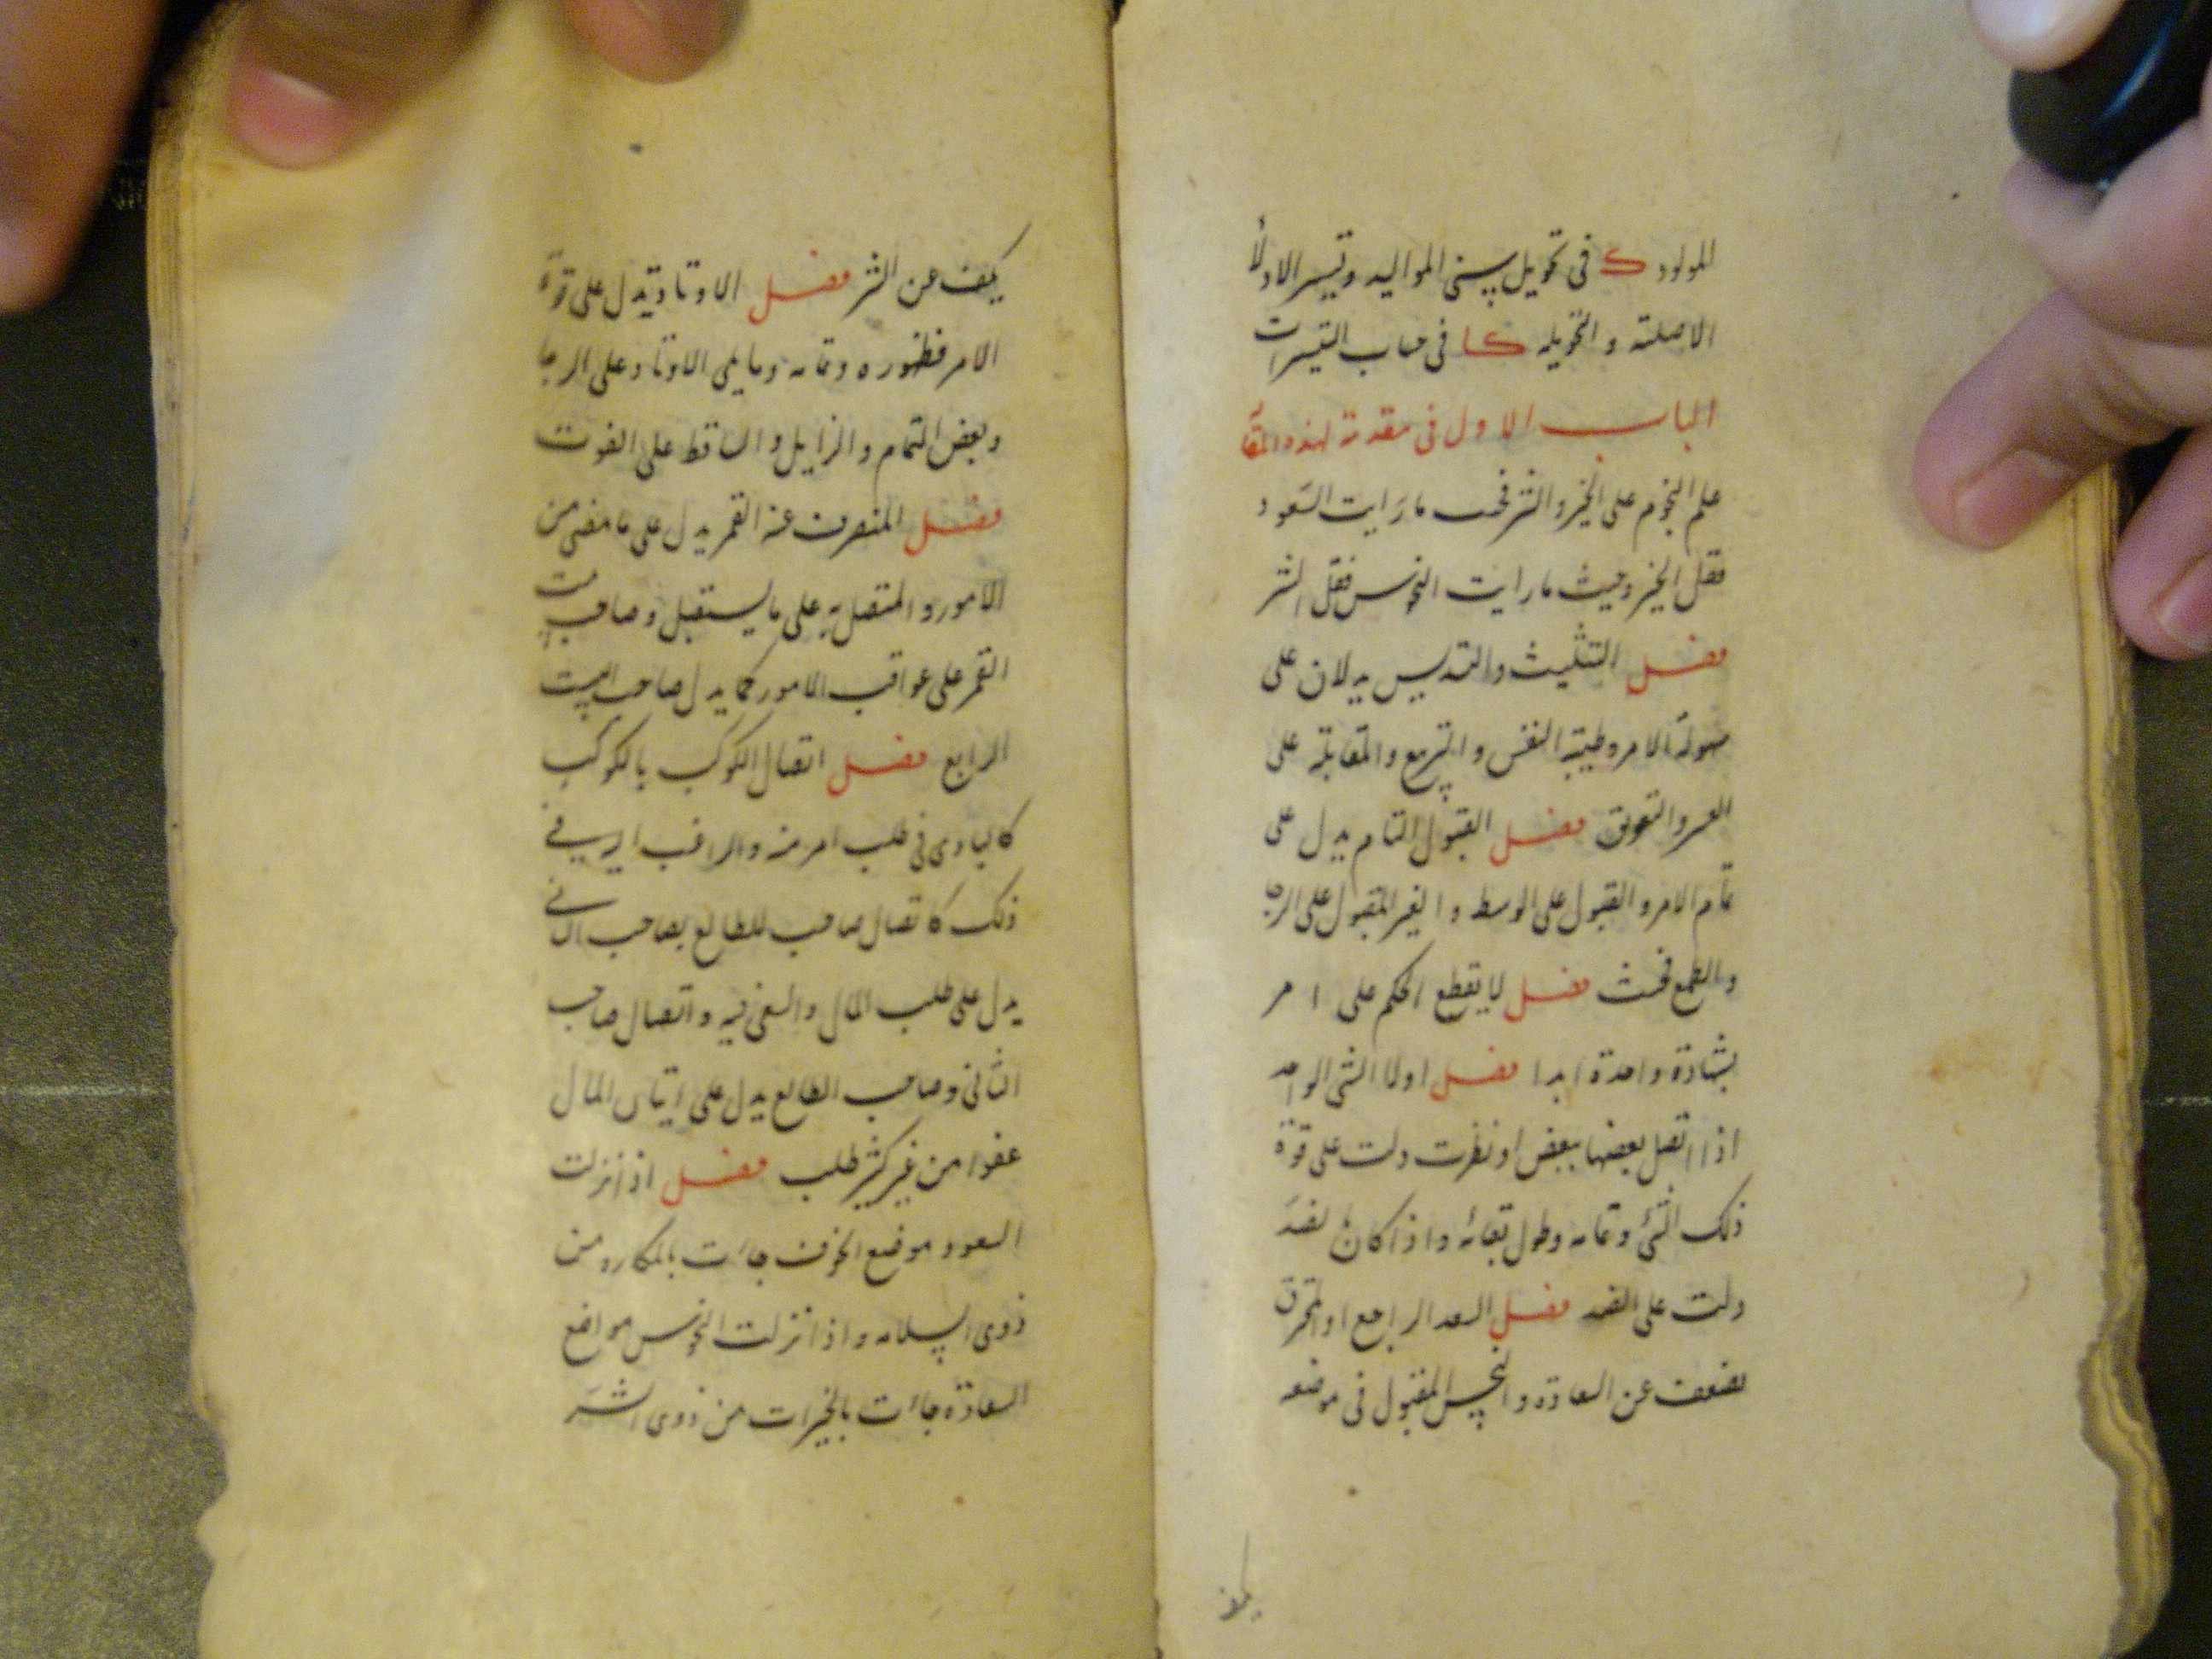 المولود ك فى تحويل سنى المواليد وتسير الادلأ
الاصلية و التحويلة كا فى حساب التسيرات
الباب الاول فى مقدمة لهذه المقا
علم النجوم على الخير والشر فحيث ما رايت السعود
فقل الخير وحيث ما رايت النحوس فقل الشر
فصل التثليث والتسديس يدلان على
سهولة الامر وطيبة النفس والتربيع والمقابلة على
العسر والتعويق فصل القبول التام يدل على
تمام الامر والقبول على الوسط والغير المقبول على الرجا
والطمع فحسب فصل لا يقطع الحكم على امر
بشهادة واحدة ابدا فصل اولا الشى الواحد
اذا اتصل بعضها ببعض او نظرت دلت على قوة
ذلك الشئ وتمامه وطول بقائه واذا كان لضد
دلت على الضد فصل السعد الراجع او المحترق
يضعف عن السعادة والنحس المقبول فى موضعه
يكف
يكف عن الشر فصل الاوتاد تدل على قوة
الامر فظهوره وتمامه وما يلى الاوتاد على الرجا
وبعض التمام والزايل والساقط على الفوت
فصل المنصرف عنه القمر يدل على ما مضى من
الامور والمتصل به على ما يستقبل وصاحب بيت
القمر على عواقب الامور كما يدل صاحب البيت
الرابع فصل اتصال الكوكب بالكوكب
كالبادى فى طلب امر منه والراغب اليه فى
ذلك كاتصال صاحب للطالع بصاحب الثانى
يدل على طلب المال والسعى فيه واتصال صاحب
الثانى وصاحب الطالع يدل على اتيان المال
عفوا من غير كثير طلب فصل اذا نزلت
السعود موضع الخوف جاات بالمكاره من
ذوى السلامه واذا نزلت النحوس مواضع
السعادة جاات بالخيرات من ذوى الشر